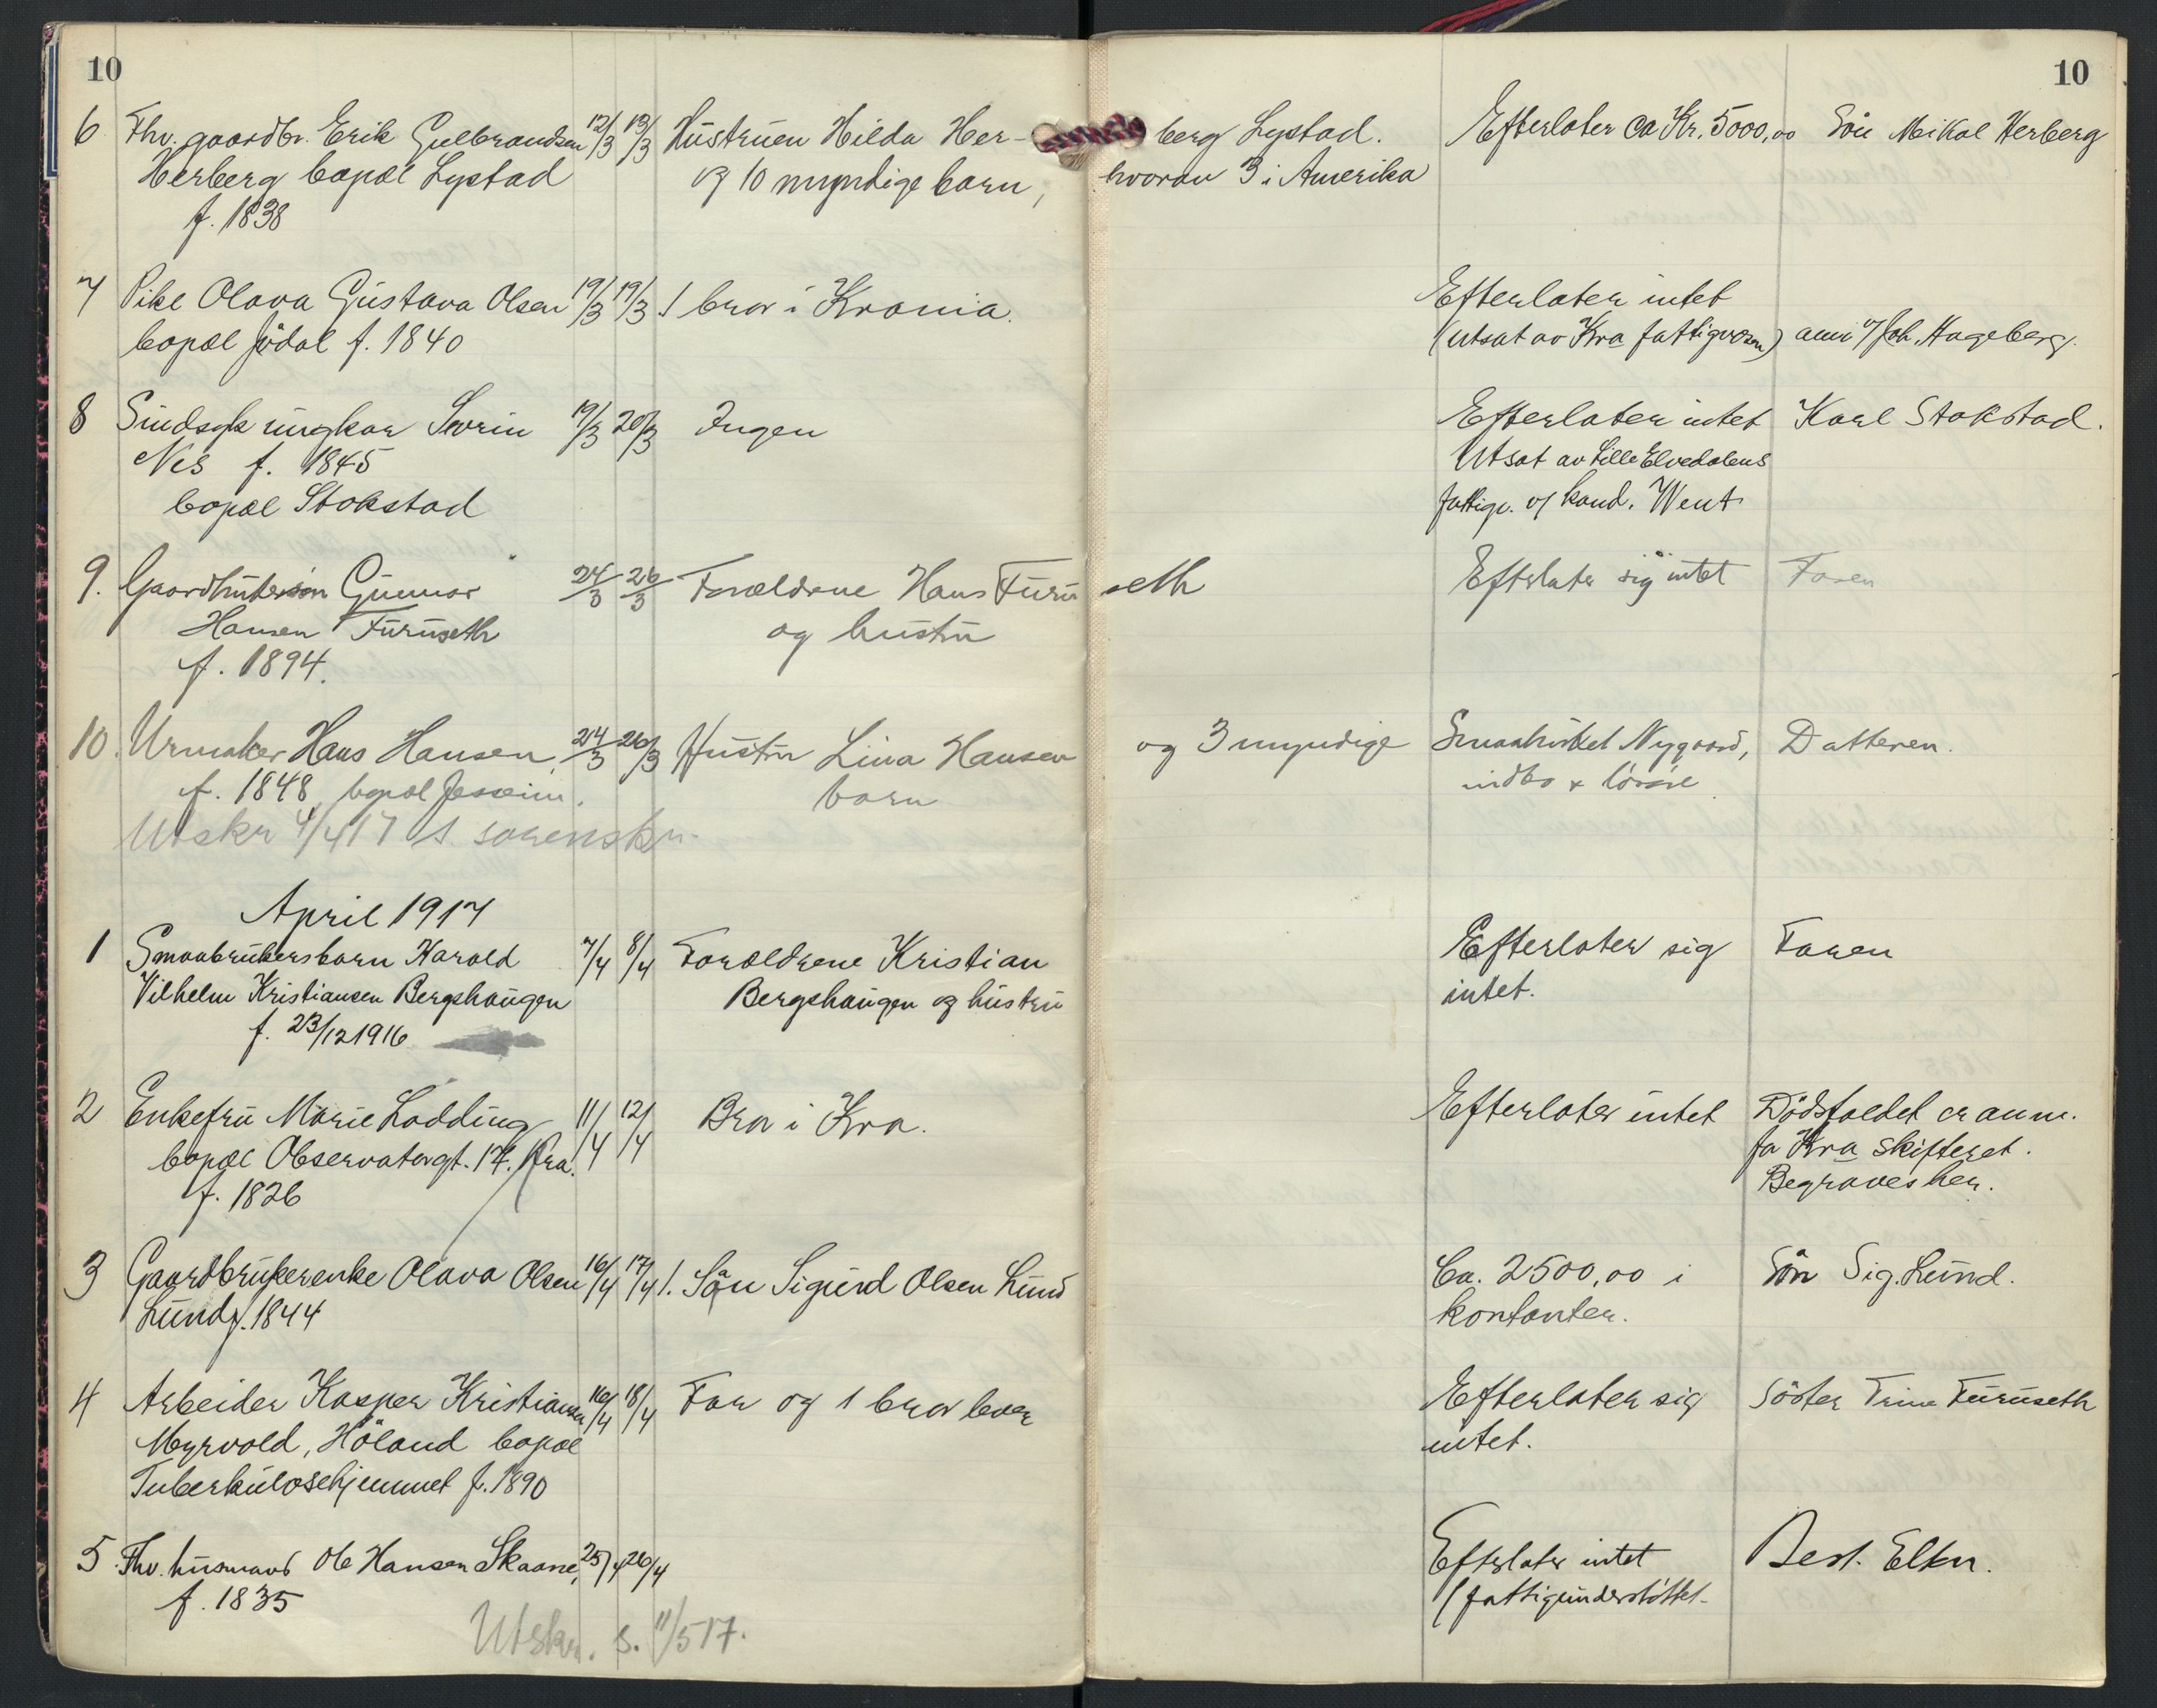 10
10
6 Fhv. gaardbr. Erik Gulbrandsen 12/3 13/3 Hustruen Hilda Herberg Lystad. Efterlater Ca Kr. 5000,00 Sön Mikal Herberg
Herberg bopæl Lystad og 10 myndige barn, hvorav 3 i Amerika
f. 1838
7 Pike Olava Gustava Olsen 19/3 19/3 1 bror i Krania. Efterlater intet
bopæl Jödal f. 1840 (utsat av Kra fattigvæsen) anm v/ Joh. Hageberg.
8 Sindsyk ungkar Sevrin 19/3 20/3 Ingen Efterlater intet Karl Stokstad.
Nes f. 1845 Utsat av Lille Elvedalens
bopæl Stokstad fattigv. v/ kand. Went
9. Gaardbrukersön Gunnar 24/3 26/3 Forældrene Hans Furuseth Efterlater sig intet Faren
Hansen Furuseth og hustru
f. 1894.
10. Urmaker Hans Hansen, 24/3 26/3 Hustru Lina Hansen og 3 myndige Smaabruket Nygaard, Datteren.
f. 1848, bopæl Jessheim. barn indbo & lösöre
Utskr 4/4 17 t. sorenskr.
April 1917
1 Smaabrukersbarn Harald 7/4 8/4 Forældrene Kristian Efterlater sig Faren
Vilhelm Kristiansen Bergshaugen Bergshaugen og hustru intet.
f. 23/12 1916
2 Enkefru Marie Lodding 11/4 12/4 Bror i Kra. Efterlater intet Dödsfaldet er anm.
bopæl Observatorgt. 17. Kra. fa Kra skifteret.
f. 1826 Begraves her.
3 Gaardbrukerenke Olava Olsen 16/4 17/4 1. Sön Sigurd Olsen Lund Ca. 2500,00 i Sön Sig. Lund.
Lund f. 1844 kontanter.
4 Arbeider Kasper Kristiansen 16/4 18/4 Far og 1 bror lever Efterlater sig Söster Trine Furuseth
Myrvold, Höland bopæl intet.
Tuberkulosehjemmet f. 1890
5 Fhv. husmand Ole Hansen Skaane, 25/4 26/4 Efterlater intet Best. Elkn.
f. 1835 (fattigunderstöttet
Utskr. s. 11/5 17.